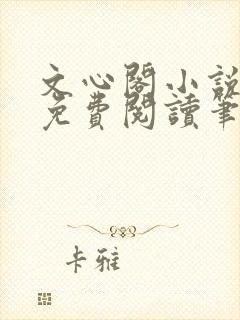 文心閣小說
免費閱讀筆
卡雅